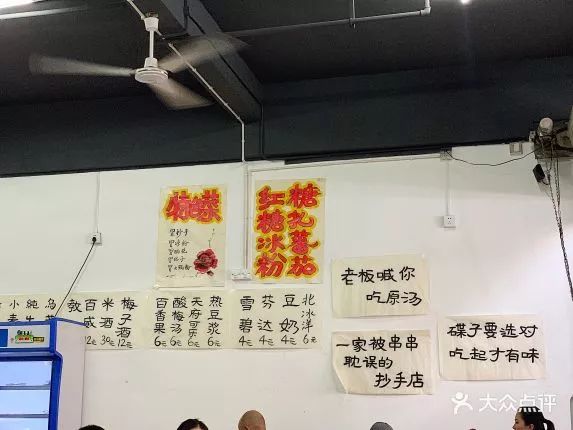 菜
红糖冰粉
糖扎蕃茄
老板喊你
吃原汤
一家被串串
耽误的
抄手店
碟子要选对
吃起才有味
百威
米酒 30元
梅子酒 12元
百香果 6元
酸梅汤 6元
天府可乐 6元
热豆浆 6元
雪碧 4元
芬达 4元
豆奶 4元
北冰洋 6元
大众点评